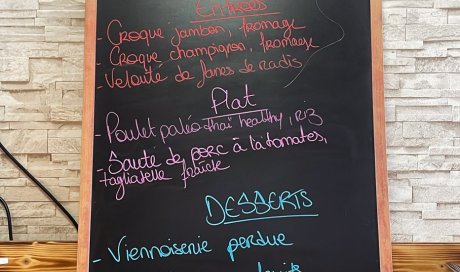 Entrées
- Croque jambon, fromage
- Croque champignon, fromage
- Velouté de fanes de radis
Plat
- Poulet paléo thaï healthy, riz
- Sauté de porc à la tomates,
tagliatelle fraîche
DESSERTS
- Viennoiserie perdue